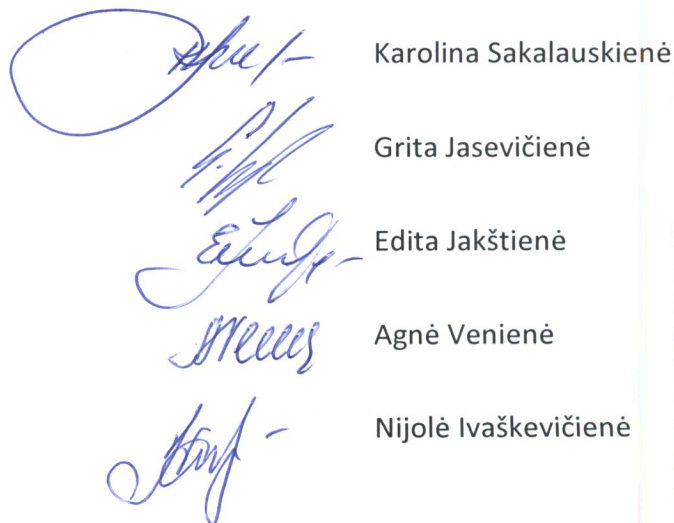 Karolina Sakalauskienė
Grita Jasevičienė
Edita Jakštienė
Agnė Venienė
Nijolė Ivaškevičienė